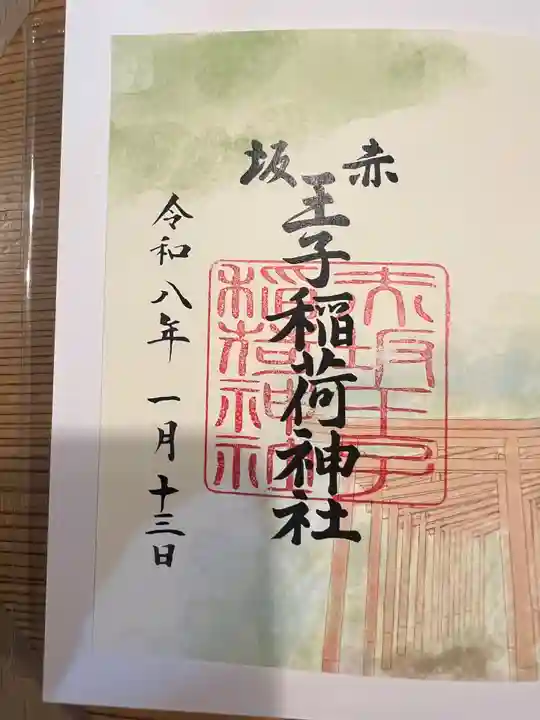 赤坂
王子稲荷神社
赤坂王子
稲荷神社
令和八年 一月十三日